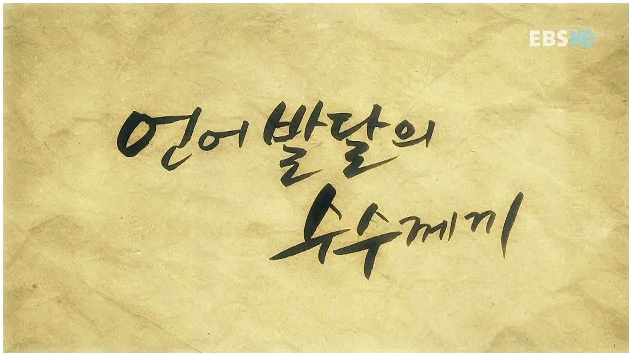 EBS HD
언어 발달의
수수께끼